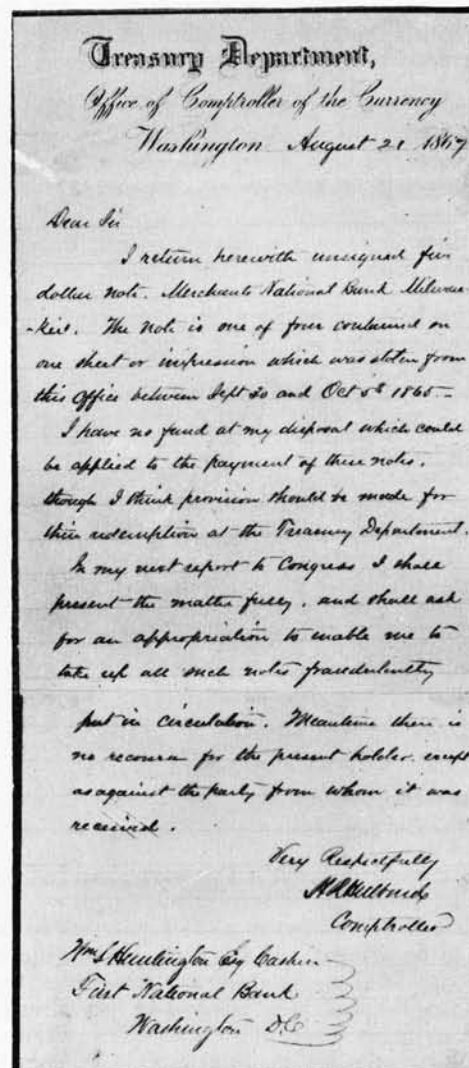 Treasury Department,
Office of Comptroller of the Currency
Washington August 21 1867
Dear Sir
I return herewith unsigned five
dollar note. Merchants National Bank Milwau-
-kee. The note is one of four contained on
one sheet or impression which was stolen from
this office between Sept 20 and Oct 5th 1865 -
I have no fund at my disposal which could
be applied to the payment of these notes,
though I think provision should be made for
their redemption at the Treasury Department.
In my next report to Congress I shall
present the matter fully, and shall ask
for an appropriation to enable me to
take up all such notes fraudulently
put in circulation. Meantime there is
no recourse for the present holder, except
as against the party from whom it was
received.
Very Respectfully
H R Hulburd
Comptroller
Wm S Huntington Esq Cashier
First National Bank
Washington D.C.